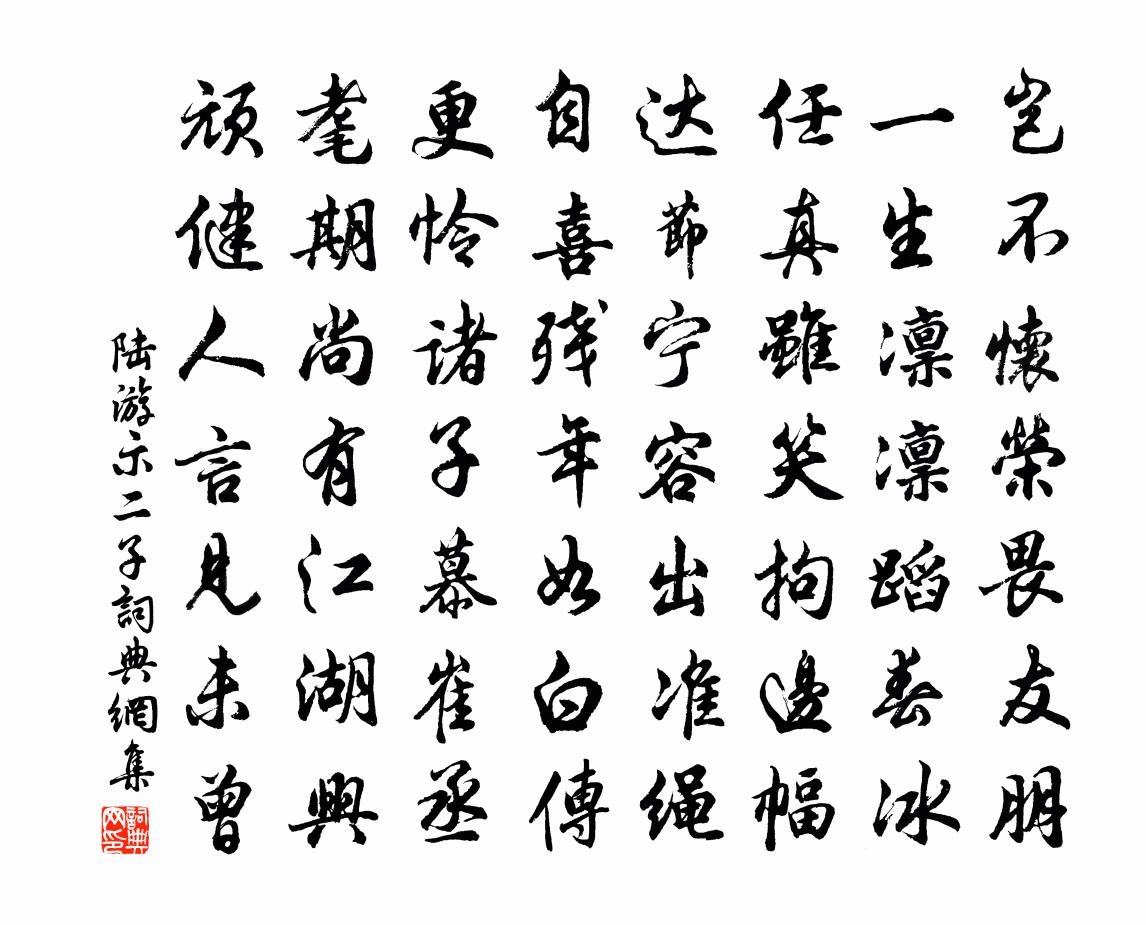 岂不懷榮畏友朋
一生凛凛蹈春冰
任真雖笑拘邊幅
达節宁容出准绳
自喜残年如白傅
更怜诸子慕崔丞
耄期尚有江湖興
頑健人言見未曾
陆游示二子詞典網集
詞典网印